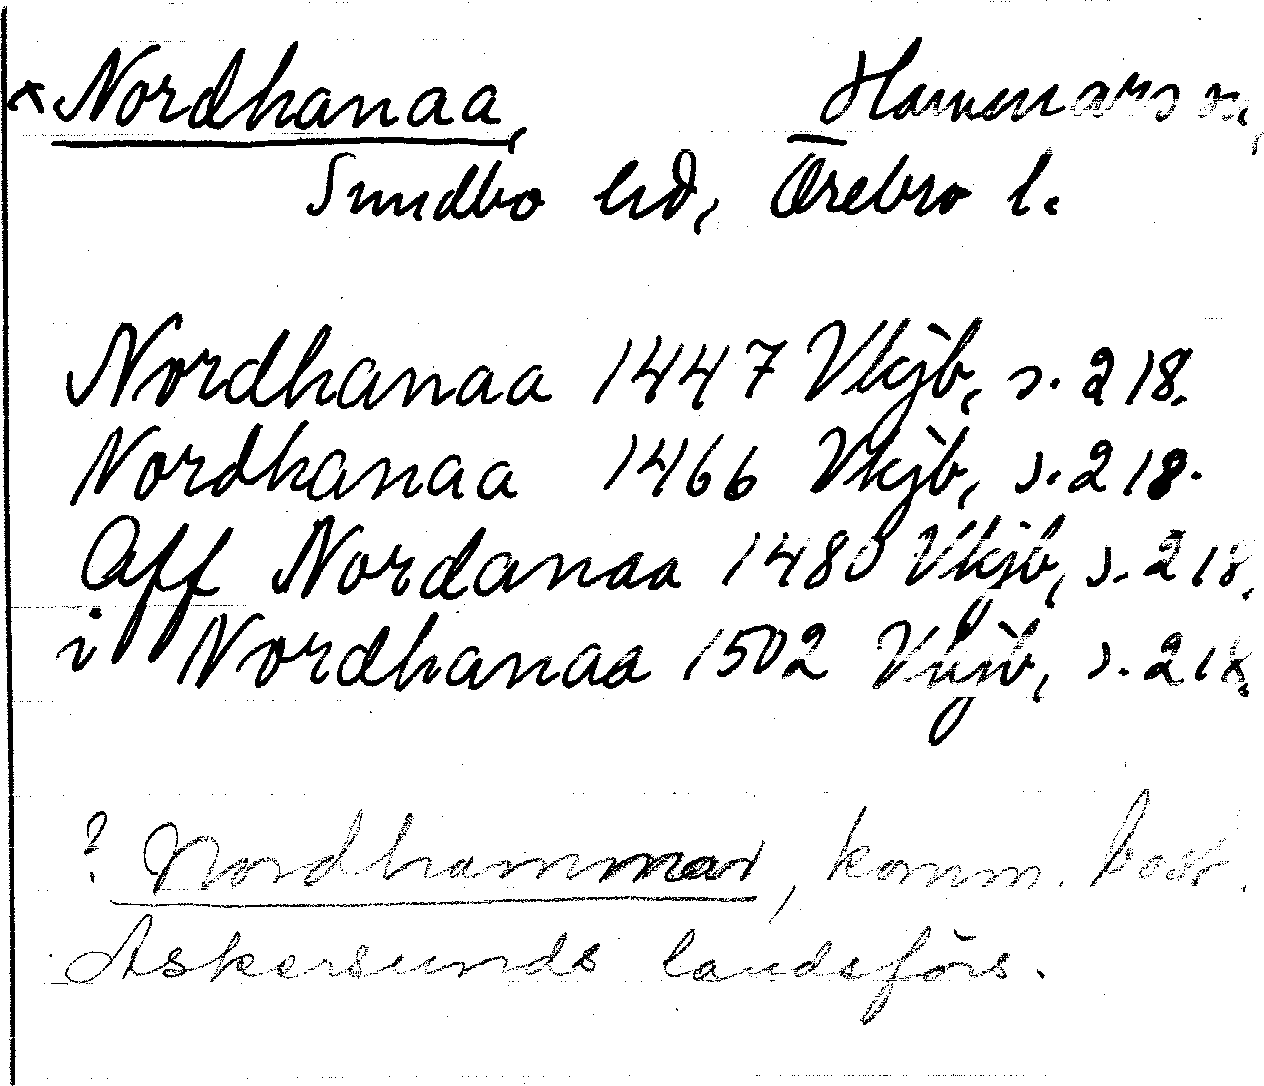 x Nordhanaa, Hammars sn,
Sundbo hd, Örebro l.
Nordhanaa 1447 Vkjb, s. 218.
Nordhanaa 1466 Vkjb, s. 218.
Aff Nordanaa 1480 Vkjb, s. 218.
i Nordhanaa 1502 Vkjb, s. 218.
? Nordhammar, komm.
Askersunds landsförs.